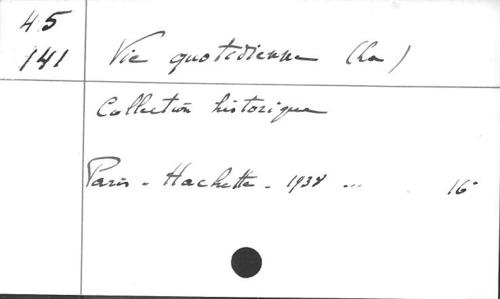 45
141 Vie quotidienne (La)
Collection historique
Paris - Hachette - 1938 ... 16°